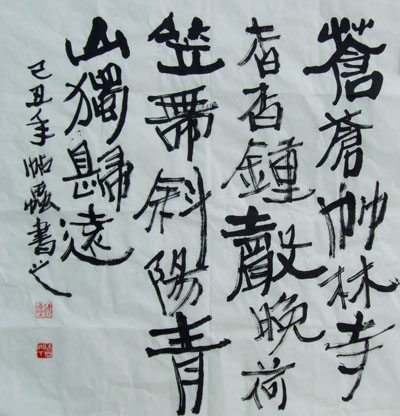 蒼蒼竹林寺
杳杳鍾聲晚荷
笠帶斜陽青
山獨歸遠
己丑年書之